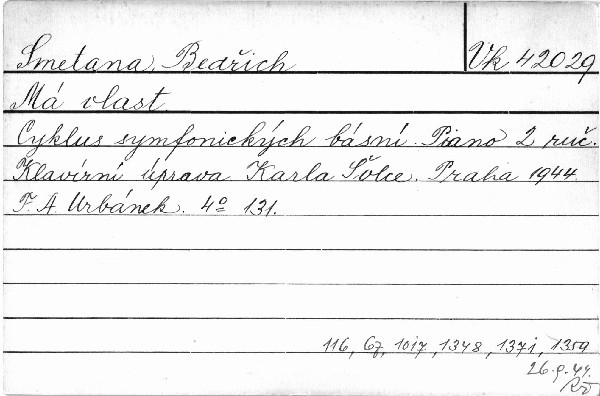 Smetana, Bedřich Vk 42029
Má vlast.
Cyklus symfonických básní. Piano 2 ruč.
Klavírní úprava Karla Šolce. Praha 1944.
F. A. Urbánek. 4º 131.
116, 67, 1017, 1348, 1371, 1359